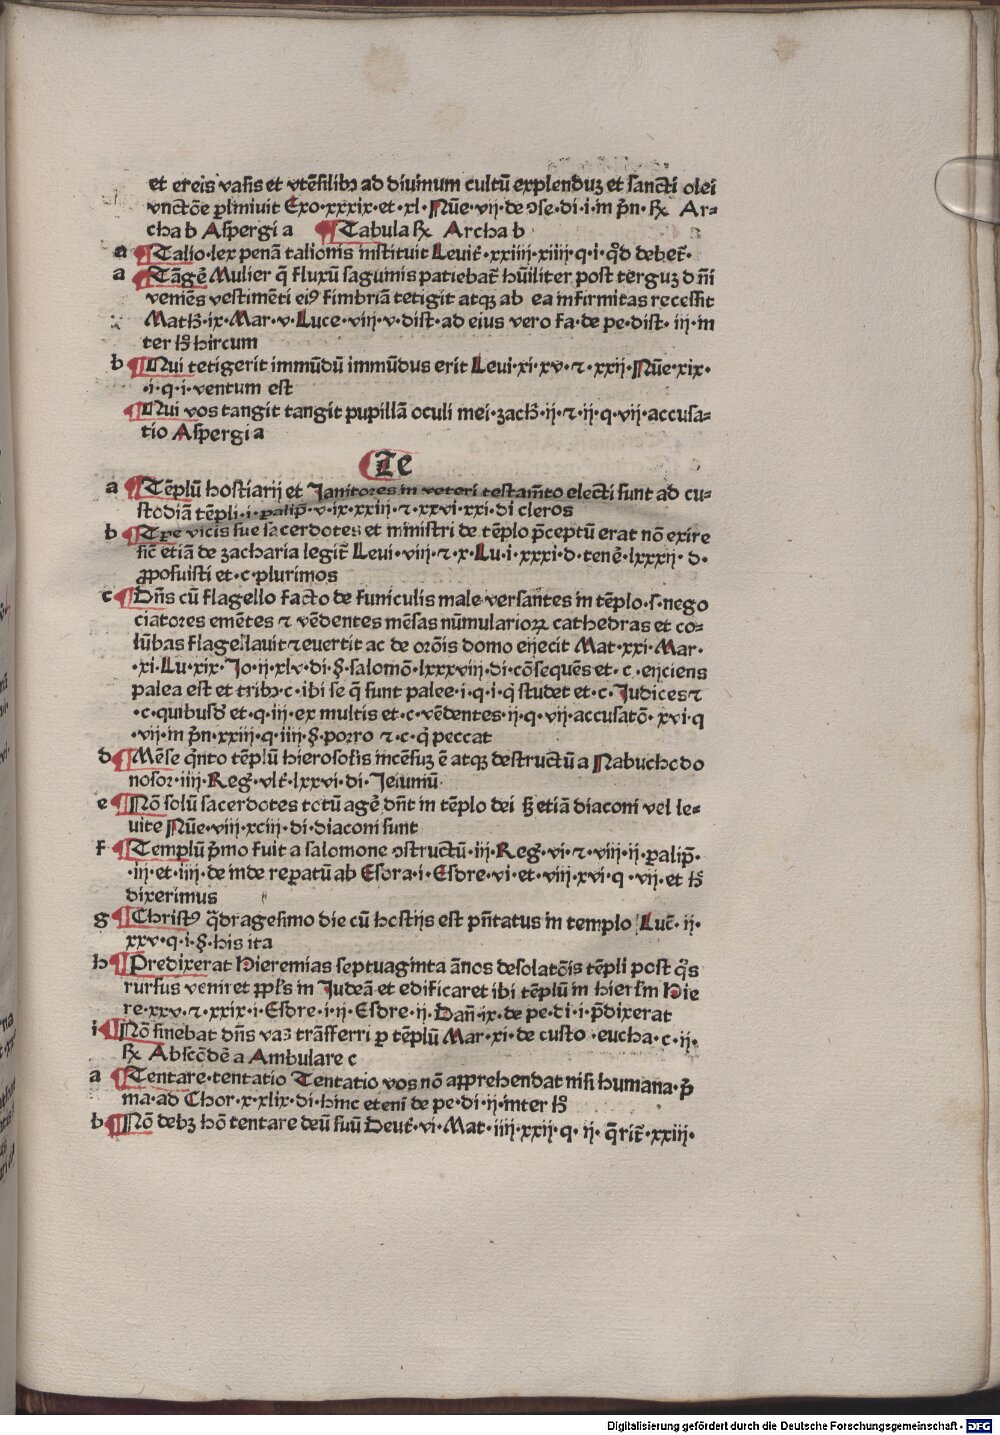 et ereis vasis et vtēsilibꝫ ad diuinum cultū explenduꝫ et sancti olei
vnctōe ꝑlmiuit Exo·xxxix·et·xl·Nūe·vij·de ↄse·di·i·in p̄n· ℞ Ar=
cha b Aspergi a ¶Tabula ℞ Archa b
a ¶Talio·lex penā talionis instituit Leuit̄·xxiiij·xiiij·q·i·qd̊ debet̄·
a ¶Tāgē Mulier q̄ fluxū sagumis patiebat̄ hūiliter post terguꝫ dn̄i
veniēs vestimēti eiꝰ fimbriā tetigit atqꝫ ab ea infirmitas recessit
Matħ·ix·Mar·v·Luce·viij·v·dist·ad eius vero fa·de pe·dist· iij·in
ter ħ hircum
b ¶Qui tetigerit immūdū immūdus erit Leui·xi·xv·⁊·xxij·Nūe·xix·
·i·q·i·ventum est
¶Qui vos tangit tangit pupillā oculi mei·zacħ·ij·⁊·ij·q·vij·accusa=
tio Aspergi a
¶Te
a ¶Tēplū hostiarij et Janitores in veteri testam̄to electi sunt ad cu=
stodiā tēpli·i·ꝑalip̄·v·ix·xxiij·⁊·xxvi·xxi·di cleros
b ¶Tꝑe vicis sue sacerdotes et ministri de tēplo p̄ceptū erat nō exire
sic̄ etiā de zacharia legit̄ Leui·viij·⁊·x·Lu·i·xxxi·d·tenē·lxxxij· d·
ꝓposuisti et·c·plurimos
c ¶Dn̄s cū flagello facto de funiculis male versantes in tēplo·s·nego
ciatores emētes ⁊ vēdentes mēsas nūmularioꝝ cathedras et co=
lūbas flagellauit ⁊euertit ac de orōis domo eijecit Mat·xxi·Mar·
·xi·Lu·xix·Jo·ij·xlv·di·§·salomō·lxxxviij·di·cōsequēs et· c ·eijciens
palea est et tribꝫ·c·ibi se q̄ sunt palee·i·q·i·q̇ studet et·c·Judices⁊
·c·quibusd̄ et·q·iij·ex multis et·c·vēdentes·ij·q·vij·accusatō· xvi·q
·vij·in p̄n·xxiij·q·iiij·§·porro ⁊·c·q̇ peccat
d ¶Mēse q̇nto tēplū hierosolīs incēsuꝫ ē atqꝫ destructū a Nabuchodo
nosor·iiij·Reg̃·vlt̄·lxxvi·di·Jeiuniū·
e ¶Nō solū sacerdotes totū agē dn̄t in tēplo dei ꝫ etiā diaconi vel le=
uite Nūe·viij·xciij·di·diaconi sunt
f ¶Templū p̄mo fuit a salomone ↄstructū·iij·Reg̃·vi·⁊·viij·ij·ꝑalip̄·
·iij·et·iiij·de inde reꝑatū ab Esdra·i·Esdre·vi·et·viij·xvi·q ·vij·et ħ
dixerimus
g ¶Christꝰ q̇dragesimo die cū hostijs est pn̄tatus in templo Luc̄·ij·
xxv·q·i·§·his ita
h ¶Predixerat Hieremias septuaginta ānos desolatōis tēpli post q̊s
rursus veniret ppl̄s in Judeā et edificaret ibi tēplū in hierl̄m Hie
re·xxv·⁊·xxix·i·Esdre·i·ij·Esdre·ij·Dan̄·ix·de pe·di·i·p̄dixerat
i ¶Nō sinebat dn̄s vaꝫ trāsferri ꝑ tēplū Mar·xi·de custo·eucha·c·ij·
℞ Abscōdē a Ambulare c
a ¶Tentare·tentatio Tentatio vos nō apprehendat nisi humana·p̄
ma·ad Chor·x·xlix·di·hinc etenī de pe·di·ij·inter ħ
b ¶Nō debꝫ hō tentare deū suū Deut̄·vi·Mat·iiij·xxij·q· ij· q̄rit̄·xxiij·
Digitalisierung gefördert durch die Deutsche Forschungsgemeinschaft - DFG